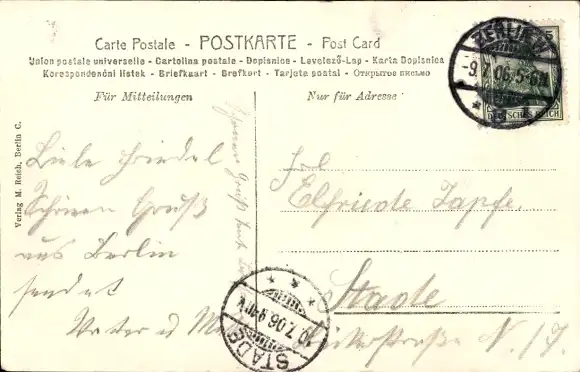 Carte Postale - POSTKARTE - Post Card
Union postale universelle - Cartolina postale - Dopisnice - Levelező-Lap - Karta Dopisnica
Korespondenční lístek - Briefkaart - Brefkort - Tarjeta postal - Открытое письмо
Für Mitteilungen
Nur für Adresse
BERLIN W
-9.7.06.5-6N
DEUTSCHES REICH
Verlag M. Reich, Berlin C.
Liebe Friedel
Schönen Gruß
aus Berlin
sendet
Gruß
Frl
Elfriede Zapfe
Stade
N
STADE
10.7.06